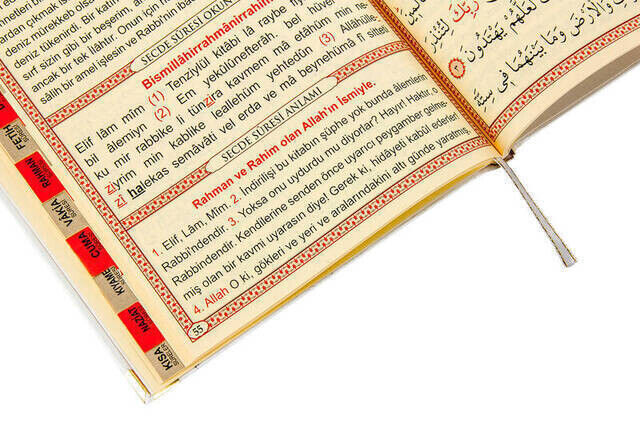 deniz mürekkep olsa
deniz tükenirdi. Bir katı
sırf sizin gibi bir beşerim, an
ancak bir tek ilâhtır. Onun için h
sâlih bir amel işlesin ve Rabbin'in ibade
SECDE SÛRESİ OKUN
Bismillâhirrahmânirrahîm
Elif lâm mîm (1) Tenzîylül kitâbi lâ raybe
bil âlemiyn (2) Em yekûlûnefterâh. bel hüv
ku mir rabbike li tünzira kavmem mâ etâhüm min ne
ziyrim min kablike leallehüm yehtedûn (3) Allâhülle
zî halekas semâvâti vel erda ve mâ beynehümâ fî sitteti
SECDE SÛRESİ ANLAMI
Rahman ve Rahim olan Allah'ın ismiyle.
1. Elif, Lâm, Mîm. 2. İndirilişi bu kitabın şüphe yok bunda âlemlerin
Rabbi'ndendir. 3. Yoksa onu uydurdu mu diyorlar? Hayır! Haktır, o
Rabbindendir. Kendilerine senden önce uyarıcı peygamber gelme-
miş olan bir kavmi uyarasın diye! Gerek ki, hidâyeti kabûl ederler!
4. Allah O ki, gökleri ve yeri ve aralarındakini altı günde yaratmış,
55
FETİH
RAHMAN
VAKİA
CUMA
KIYAME
NAZİAT
KISA
SURELER
رَبِّكَ لِتُنْذِرَ
لَعَلَّهُمْ يَهْتَدُونَ
وَالْاَرْضَ وَمَا بَيْنَهُمَا فِي سِتَّةِ